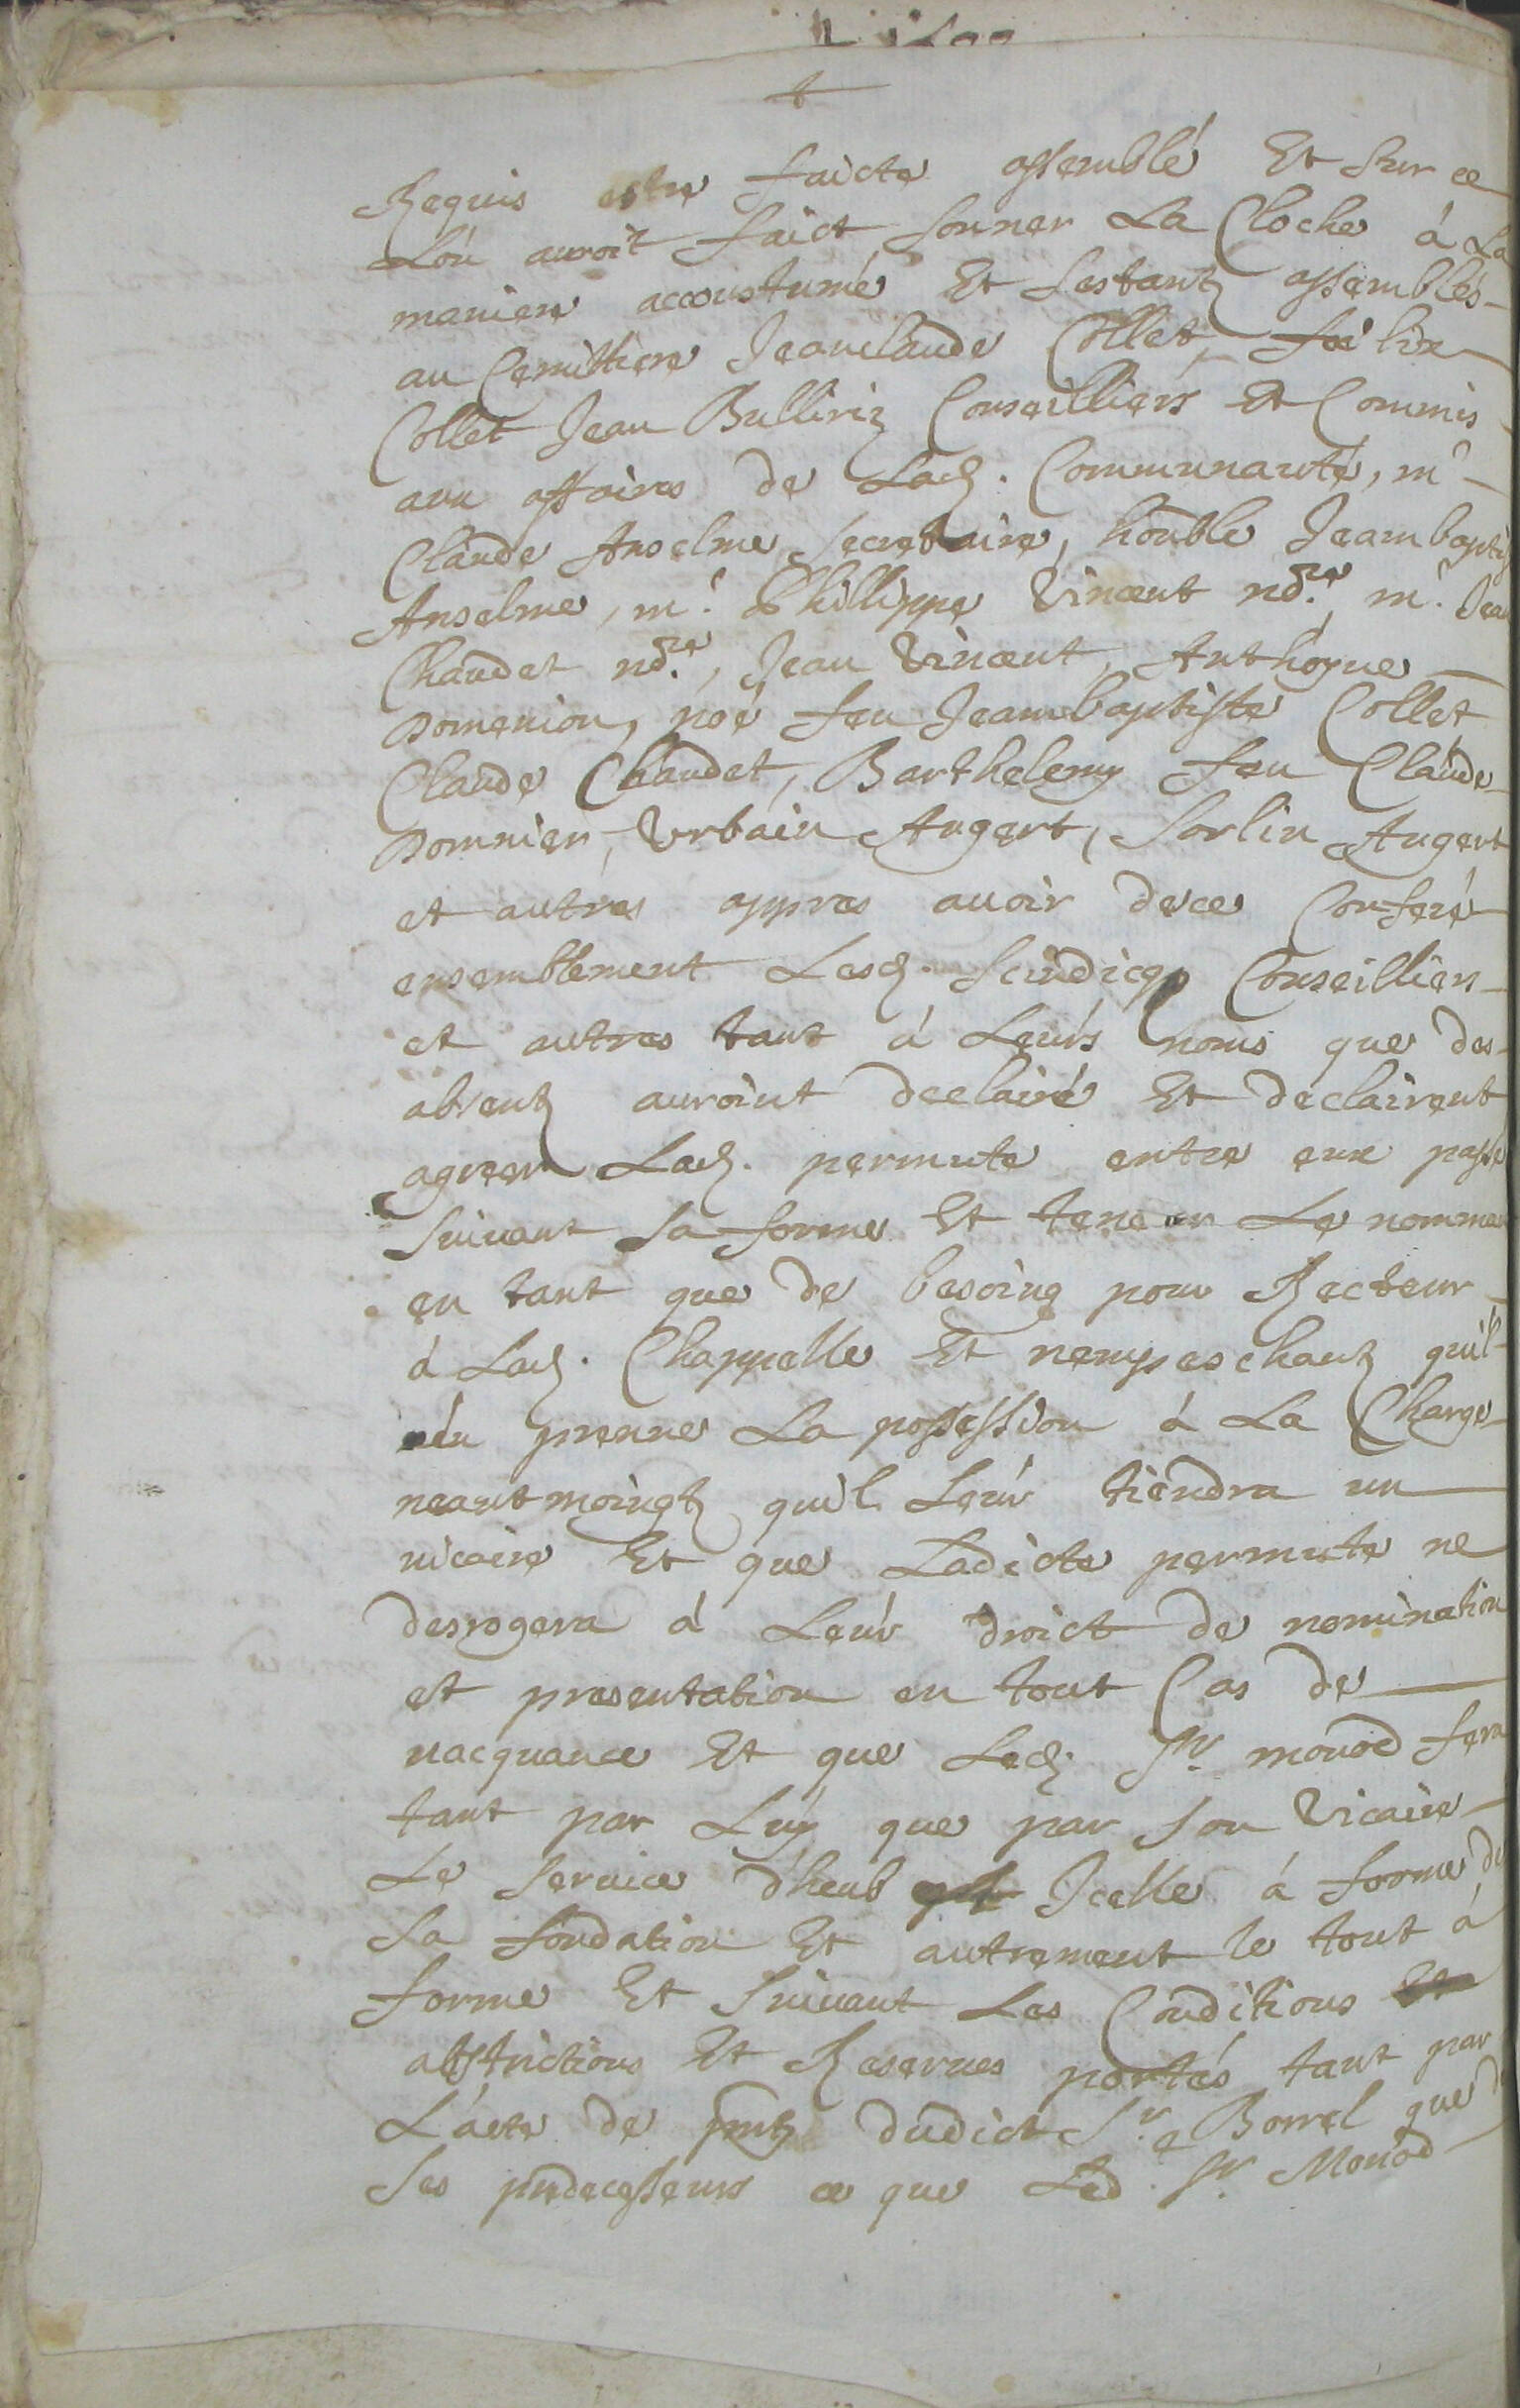 Requis estre faicte assemblé Et Sur ce
L'on auroit faict sonner La Cloche à La
maniere accoustumé Et sestantz assemblés
au Cemittiere Jeanclaude Collet, foelix
Collet Jean Bulliriz Conseilliers Et Commis
aux affaires de Lad. Communauté, me
Claude Anselme Secretaire, honble Jeambaptiste
Anselme, me. Phillippe Vincent nore. me. Jean
Chaudet nore., Jean Vincent, Anthoyne
Domenion, noé feu Jeambaptiste Collet
Claude Chaudet, Barthelemy feu Claude
Domnier, Vrbain Augert, Sorlin Augert
et autres appres auoir de ce Conferé
ensemblement Lesd. Scindicqs Conseilliers
et autres tant à Leurs noms que des
absentz auroint declairé Et declairent
agreer Lad. permute entre eux passé
Suiuant Sa forme Et teneur Le nommer
en tant que de besoing pour Recteur
à Lad. Chappelle Et nempeschantz quil
n'en prenne La possession à La Charge
neantmoingtz quil Leur tiendra un
vicaire Et que Ladicte permute ne
desrogera à Leur droict de nomination
et presentation en tout Cas de
vacquance Et que Led. Sr. monod fera
tant par Luy que par son Vicaire
Le Seruice d'heub Icelle à forme de
Sa fondation Et autrement le tout à
forme Et Suiuant Les Conditions Et
abstrictions Et Reserues portés tant par
L'acte de dudict Sr. Borrel que de
Ses predecesseurs ce que Led. Sr. Monod